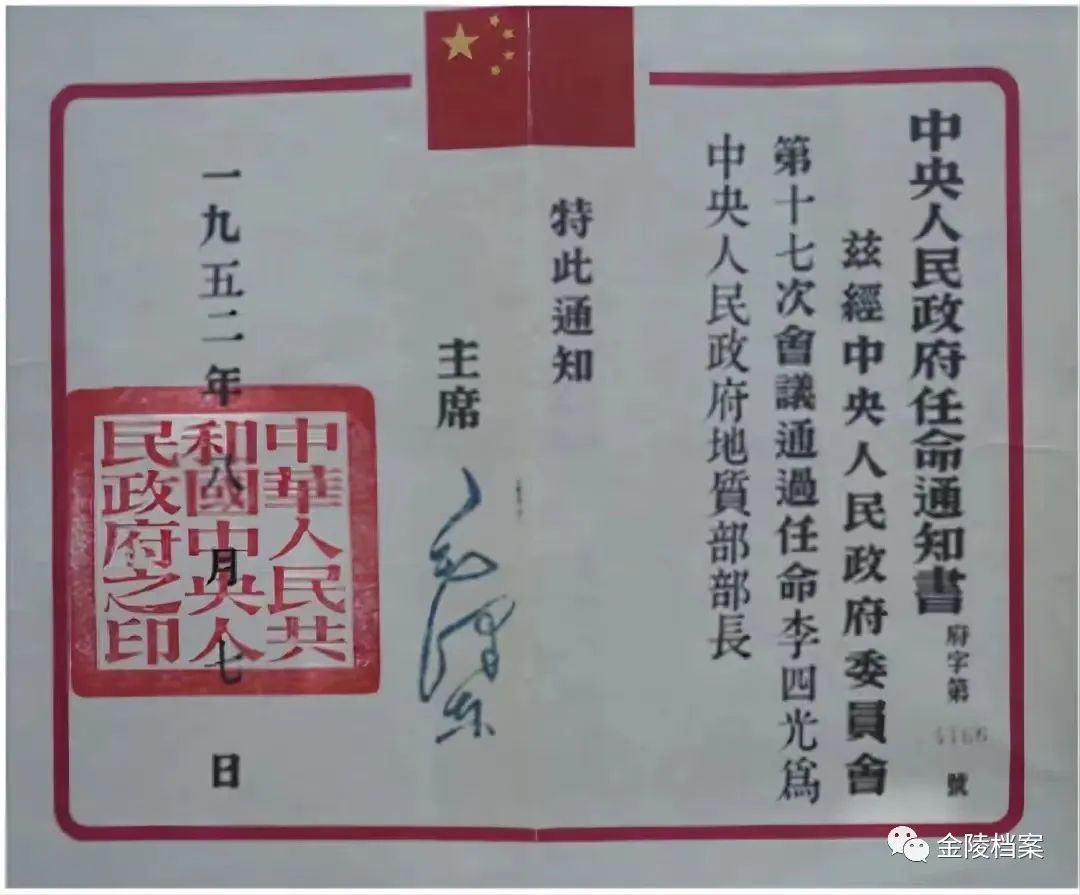 中央人民政府任命通知書
府字第4166號
茲經中央人民政府委員會
第十七次會議通過任命李四光爲
中央人民政府地質部部長
特此通知
主席
毛澤东
一九五二年八月七日
中華人民共
和國中央人
民政府之印
金陵档案